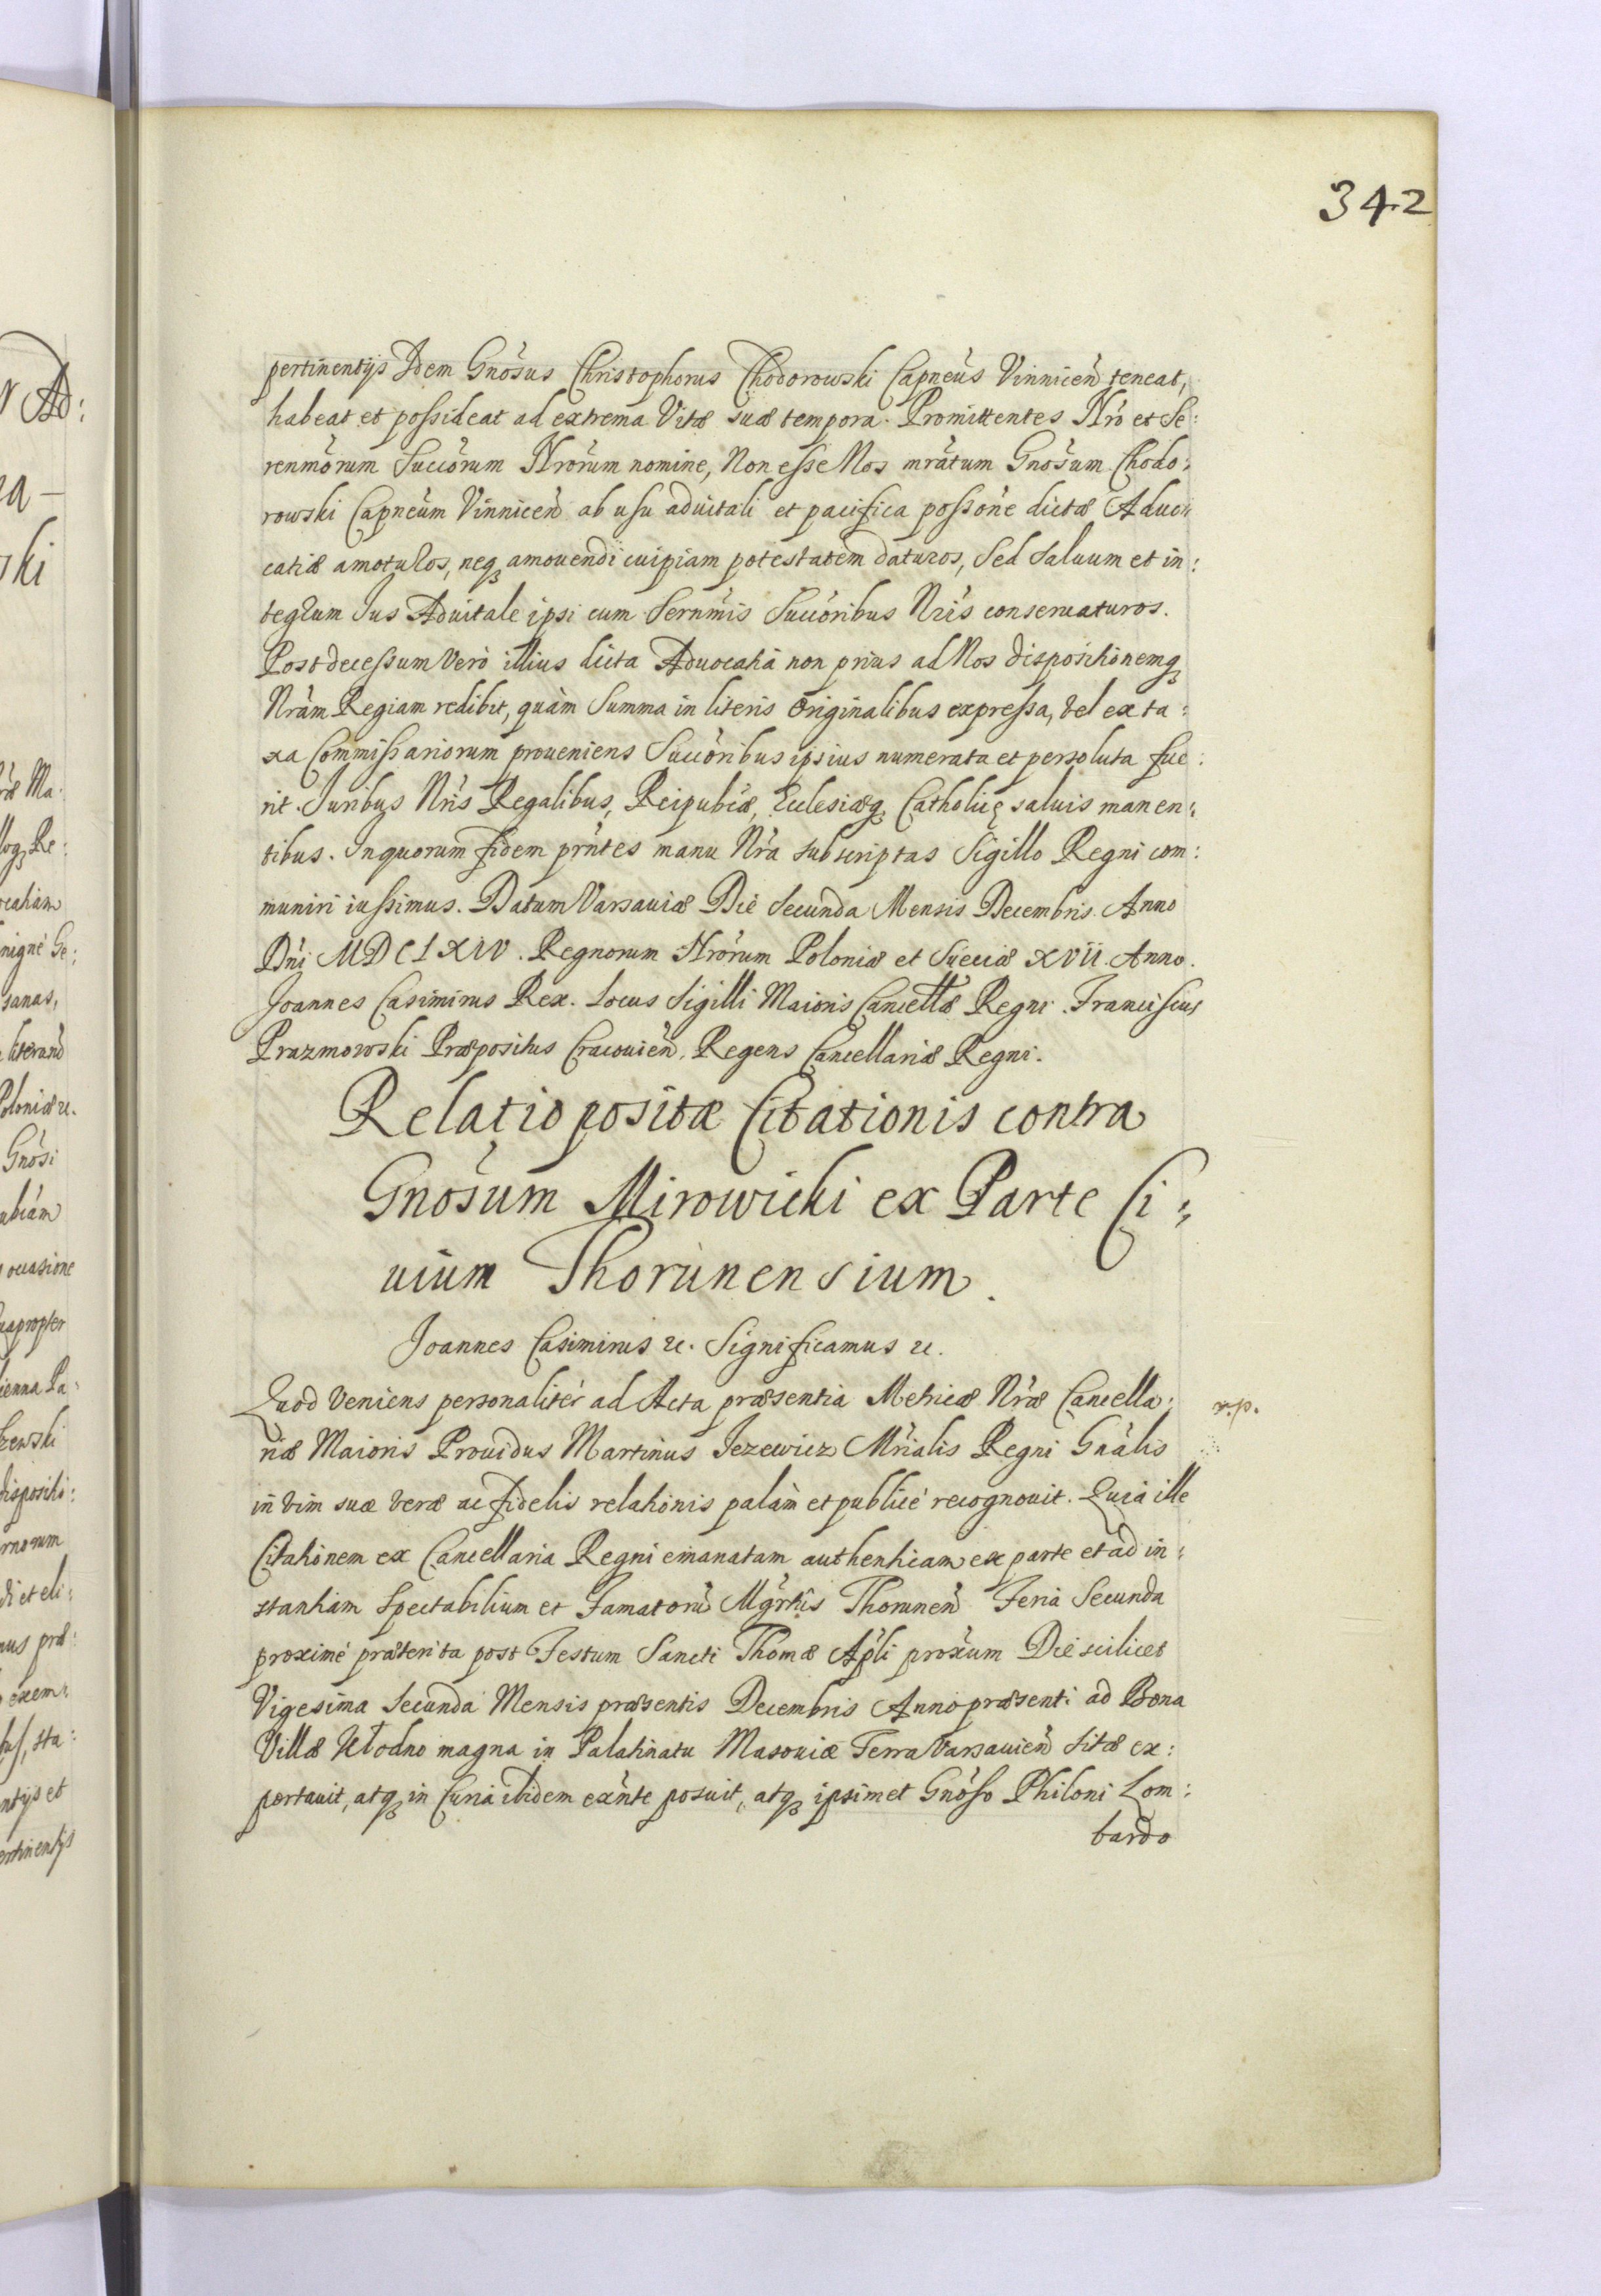 342
pertinentijs Idem Gnosus Christophorus Chodorowski Capneus Vinnicen teneat,
habeat et possideat ad extrema Vitæ suæ tempora. Promittentes Nro et Se:
renmorum Succorum Nrorum nomine, Non esse Nos mratum Gnosum Chodo:
rowski Capneum Vinnicen ab usu aduitali et pacifica possone dictæ Aduo:
catiæ amoturos, neq amouendi cuipiam potestatem daturos, Sed saluum et in:
tegrum Jus Aduitale ipsi cum Sernmis Succoribus Nris conseruaturos.
Post decessum Verò illius dicta Aduocatia non prius ad Nos dispositionemq
Nram Regiam redibit, quàm Summa in literis Originalibus expressa, vel ex ta:
xa Commissariorum proueniens Succoribus ipsius numerata et persoluta fue:
rit. Juribus Nris Regalibus, Reipublcæ, Ecclesiæq Catholicę saluis manen:
tibus. In quorum fidem prntes manu Nra subscriptas Sigillo Regni com:
muniri iussimus. Datum Varsauiæ Die Secunda Mensis Decembris Anno
Dni MDCLXIV. Regnorum Nrorum Poloniæ et Sueciæ XVII. Anno.
Joannes Casimirus Rex. Locus Sigilli Maioris Cancellæ Regni. Franciscus
Prazmowski Præpositus Cracouien, Regens Cancellariæ Regni.
Relatio positæ Citationis contra
Gnosum Mirowicki ex Parte Ci:
uium Thorunensium.
Joannes Casimirus etc. Significamus etc.
Quod Veniens personalitèr ad Acta præsentia Metricæ Nræ Cancella:
r.p.
riæ Maioris Prouidus Martinus Jezewicz Mrialis Regni Gnalis
in vim suæ veræ ac fidelis relationis palàm et publicè recognouit. Quia ille
Citationem ex Cancellaria Regni emanatam authenticam ex parte et ad in:
stantiam Spectabilium et Famatoru Mgrtis Thorunen Feria Secunda
proximè præterita post Festum Sancti Thomæ Apli proxum Die scilicet
Vigesima Secunda Mensis præsentis Decembris Anno præsenti ad Bona
Villæ magna in Palatinatu Masouiæ Terra Varsauien sitæ ex:
portauit, atq in Curia ibidem exnte posuit, atq ipsimet Gnoso Philoni Lom:
bardo